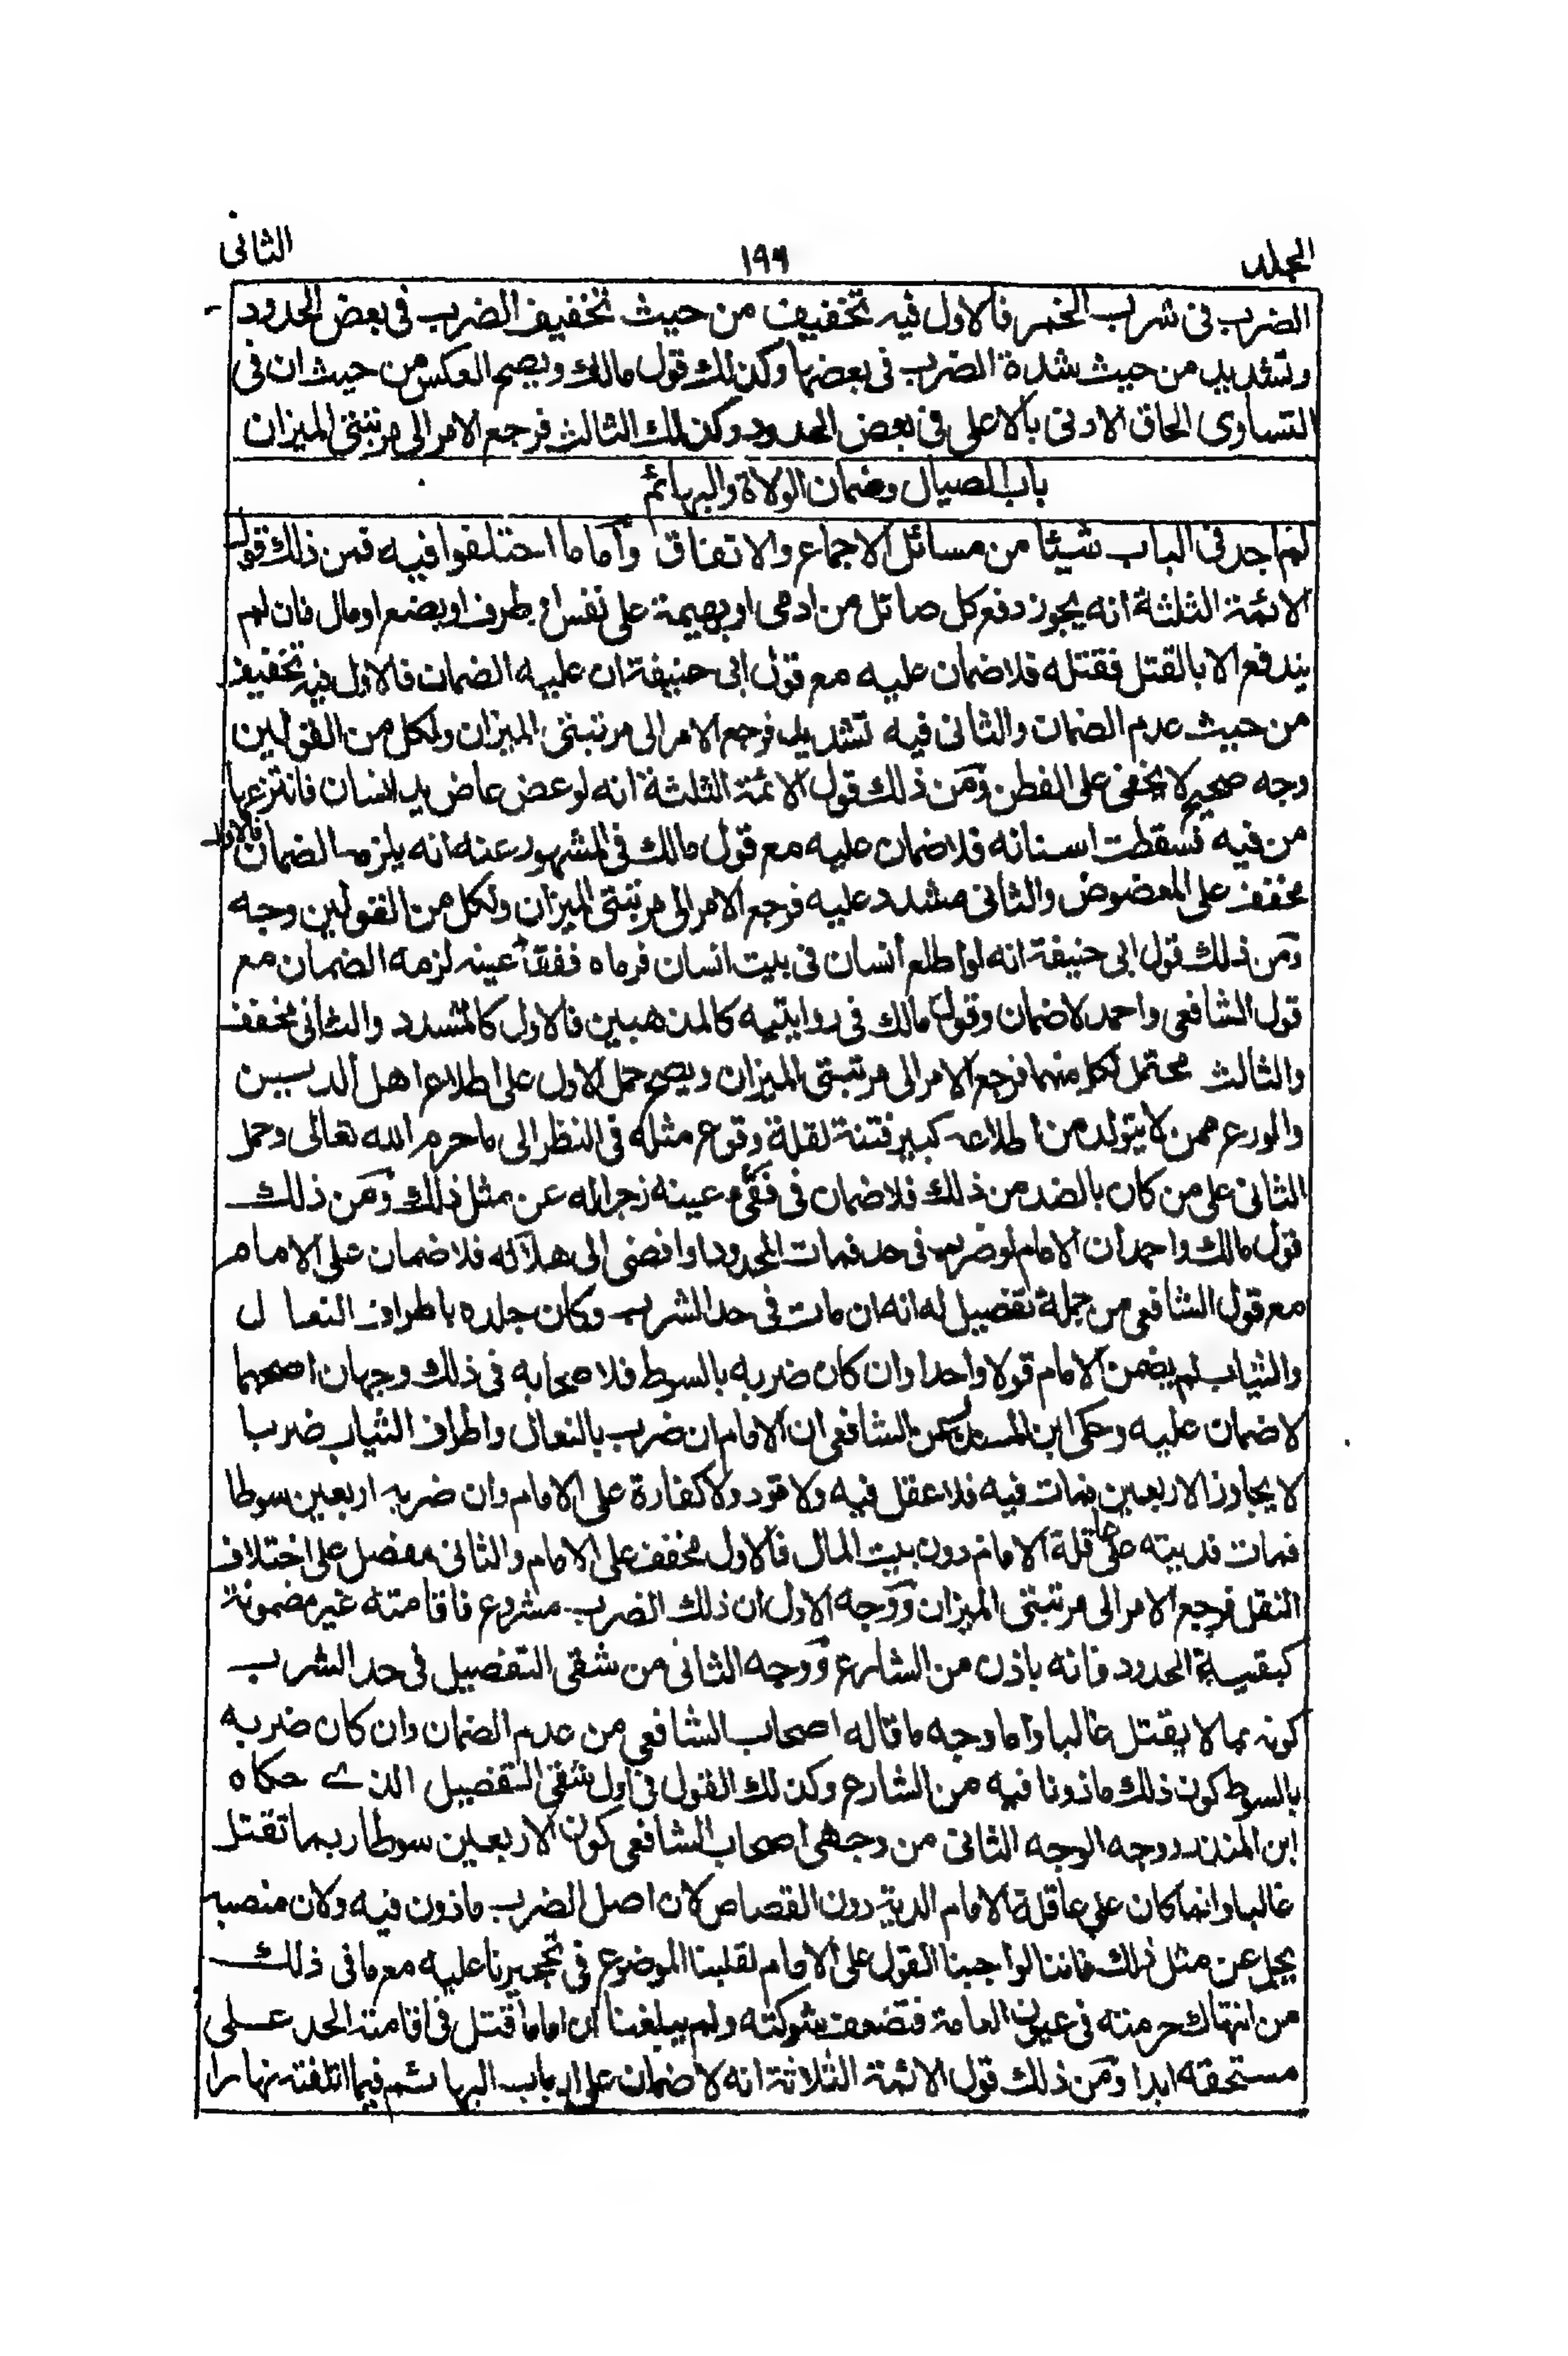 المجلد ١٩٩ الثانى
الضرب فى شرب الخمر فالاول فيه تخفيف من حيث تخفيف الضرب فى بعض الحدود
وتشديد من حيث شدة الضرب فى بعضها وكذلك قول مالك ويصح العكس من حيث ان فى
التساوى الحاق الادنى بالاعلى فى بعض الحدود وكذلك الثالث فرجع الامر الى مرتبتى الميزان
باب الصيال وضمان الولاة والبهائم
لم اجد فى الباب شيئا من مسائل الاجماع والاتفاق وأما ما اختلفوا فيه فمن ذلك قول
الائمة الثلثة انه يجوز دفع كل صائل من ادمى او بهيمة على نفس او طرف او بضع او مال فان لم
يندفع الا بالقتل فقتله فلا ضمان عليه مع قول ابى حنيفة ان عليه الضمان فالاول فيه تخفيف
من حيث عدم الضمان والثانى فيه تشديد فرجع الامر الى مرتبتى الميزان ولكل من القولين
وجه صحيح لا يخفى على الفطن ومن ذلك قول الائمة الثلثة انه لو عض عاض يد انسان فانتزعها
من فيه فسقطت اسنانه فلا ضمان عليه مع قول مالك فى المشهور عنه انه يلزمه الضمان فالاول
مخفف على المعضوض والثانى مشدد عليه فرجع الامر الى مرتبتى الميزان ولكل من القولين وجه
ومن ذلك قول ابى حنيفة انه لو اطلع انسان فى بيت انسان فرماه ففقأ عينه لزمه الضمان مع
قول الشافعى واحمد لا ضمان وقول مالك فى روايتيه كالمذهبين فالاول كالمشدد والثانى مخفف
والثالث محتمل لكل منهما فرجع الامر الى مرتبتى الميزان ويصح حمل الاول على اطلاع اهل الدين
والورع ممن لا يتولد من اطلاعه كبير فتنة لقلة وقوع مثله فى النظر الى ما حرم الله تعالى وحمل
الثانى على من كان بالضد من ذلك فلا ضمان فى فقىء عينه زجرا له عن مثل ذلك ومن ذلك
قول مالك واحمد ان الامام لو ضرب فى حد فمات المحدود او افضى الى هلاكه فلا ضمان على الامام
مع قول الشافعى من جملة تفصيل له انه ان مات فى حد الشرب وكان جلده باطراف النعال
والثياب لم يضمن الامام قولا واحدا وان كان ضربه بالسوط فلاصحابه فى ذلك وجهان اصحهما
لا ضمان عليه وحكى ابن المنذر عن الشافعى ان الامام ان ضرب بالنعال واطراف الثياب ضربا
لا يجاوز الاربعين فمات فيه فلا عقل فيه ولا قود ولا كفارة على الامام وان ضربه اربعين سوطا
فمات فديته على عاقلة الامام دون بيت المال فالاول مخفف على الامام والثانى مفصل على اختلاف
النقل فرجع الامر الى مرتبتى الميزان ووجه الاول ان ذلك الضرب مشروع فاقامته غير مضمونة
كبقية الحدود فانه باذن من الشارع ووجه الثانى من شقى التفصيل فى حد الشرب
كونه مما لا يقتل غالبا واما وجه ما قاله اصحاب الشافعى من عدم الضمان وان كان ضربه
بالسوط كون ذلك ماذونا فيه من الشارع وكذلك القول فى اول شقى التفصيل الذى حكاه
ابن المنذر ووجه الوجه الثانى من وجهى اصحاب الشافعى كون الاربعين سوطا ربما تقتل
غالبا وانما كان على عاقلة الامام الدية دون القصاص لان اصل الضرب ماذون فيه ولان منصبه
يجل عن مثل ذلك فاننا لو اوجبنا القول على الامام لقلبنا الموضوع فى تجبيرنا عليه مع ما فى ذلك
من انتهاك حرمته فى عيون العامة فتضعف شوكته ولم يبلغنا ان اماما قتل فى اقامة الحد على
مستحقه ابدا ومن ذلك قول الائمة الثلاثة انه لا ضمان على ارباب البهائم فيما اتلفته نهارا